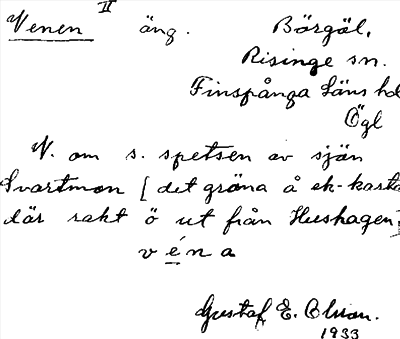 Venen II äng. Börgöl,
Risinge sn.
Finspånga läns hd
Ögl
N. om s. spetsen av sjön
Svartmon [det gröna å ek-karta
där rakt ö ut från Hushagen]
véna
Gustaf E. Olsson.
1933